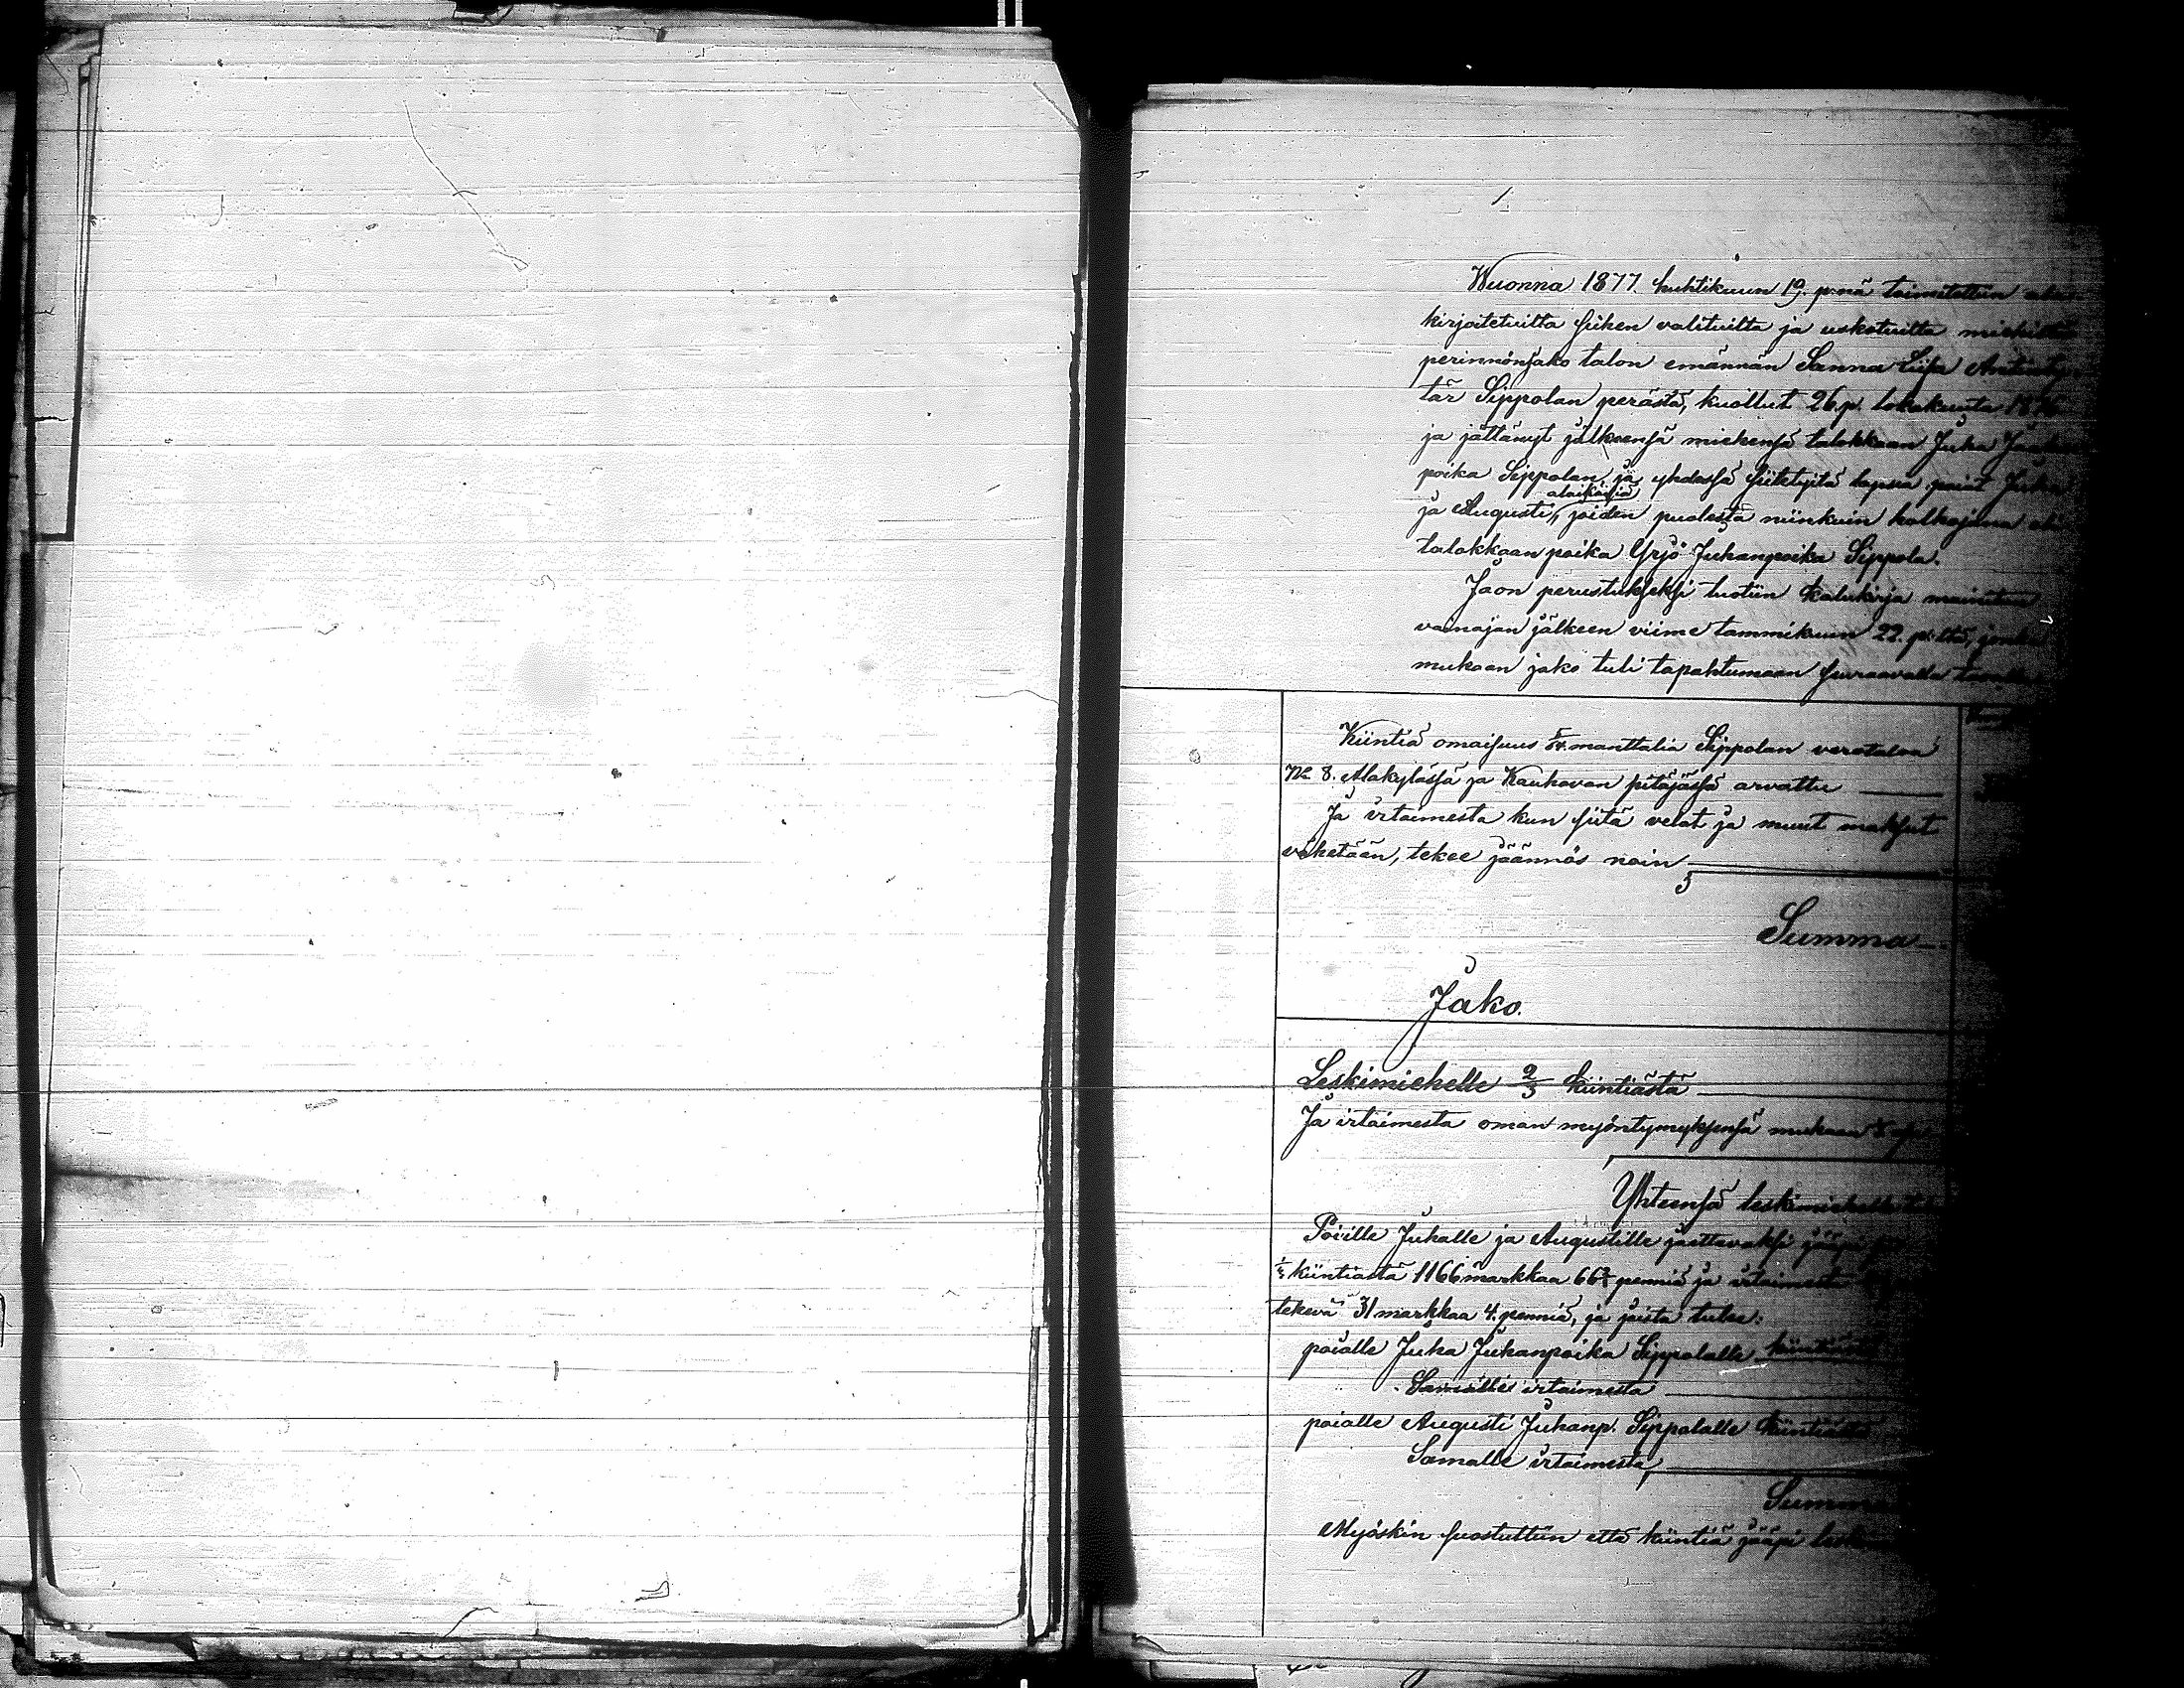 1.
Wuonna 1877 huhtikuun 19. p:nä toimitettiin alle
kirjoitetuilta siihen valituilta ja uskotuilta miehiltä
perinnönjako talon emännän Sanna Liisa Antinty
tär Sippolan perästä, kuollut 26 p. lokakuuta 1876
ja jättänyt jälkeensä miehensä talokkaan Juha Juhan
poika Sippolan, ja yhdessä siitetyitä lapsia pojat Juha
ja Augusti, alaikäisiä joiden puolesta niinkuin holhojana oli
talokkaan poika Yrjö Juhanpoika Sippola.
Jaon perustukseksi tuotiin kalukirja mainitun
vainajan jälkeen viime tammikuun 22. p:ltä, jonka
mukaan jako tuli tapahtumaan seuraavalla tavalla
Kiintiä omaisuus 5/64 manttalia Sippolan verotaloa
No 8. Alakylässä ja Kauhavan pitäjässä arvattu
Ja irtaimesta kun siitä velat ja muut maksut
väketään, tekee jäännös noin
Summa
Jako.
Leskimiehelle 2/3 kiintiästä
Ja irtaimesta oman myöntymyksensä mukaan
Yhteensä leskimiehelle
Poiille Juhalle ja Augustille jaettavaksi jääpi
1/3 kiintiästä 1166 markkaa 66 2/3 penniä ja irtaimesta
tekevä 31 markkaa 4. penniä, ja joista tulee:
poialle Juha Juhanpoika Sippolalle kiintiästä
Samalle irtaimesta
poialle Augusti Juhanp. Sippolalle kiintiästä
Samalle irtaimesta
Summa
Myöskin suostuttiin että kiintiä jääpi